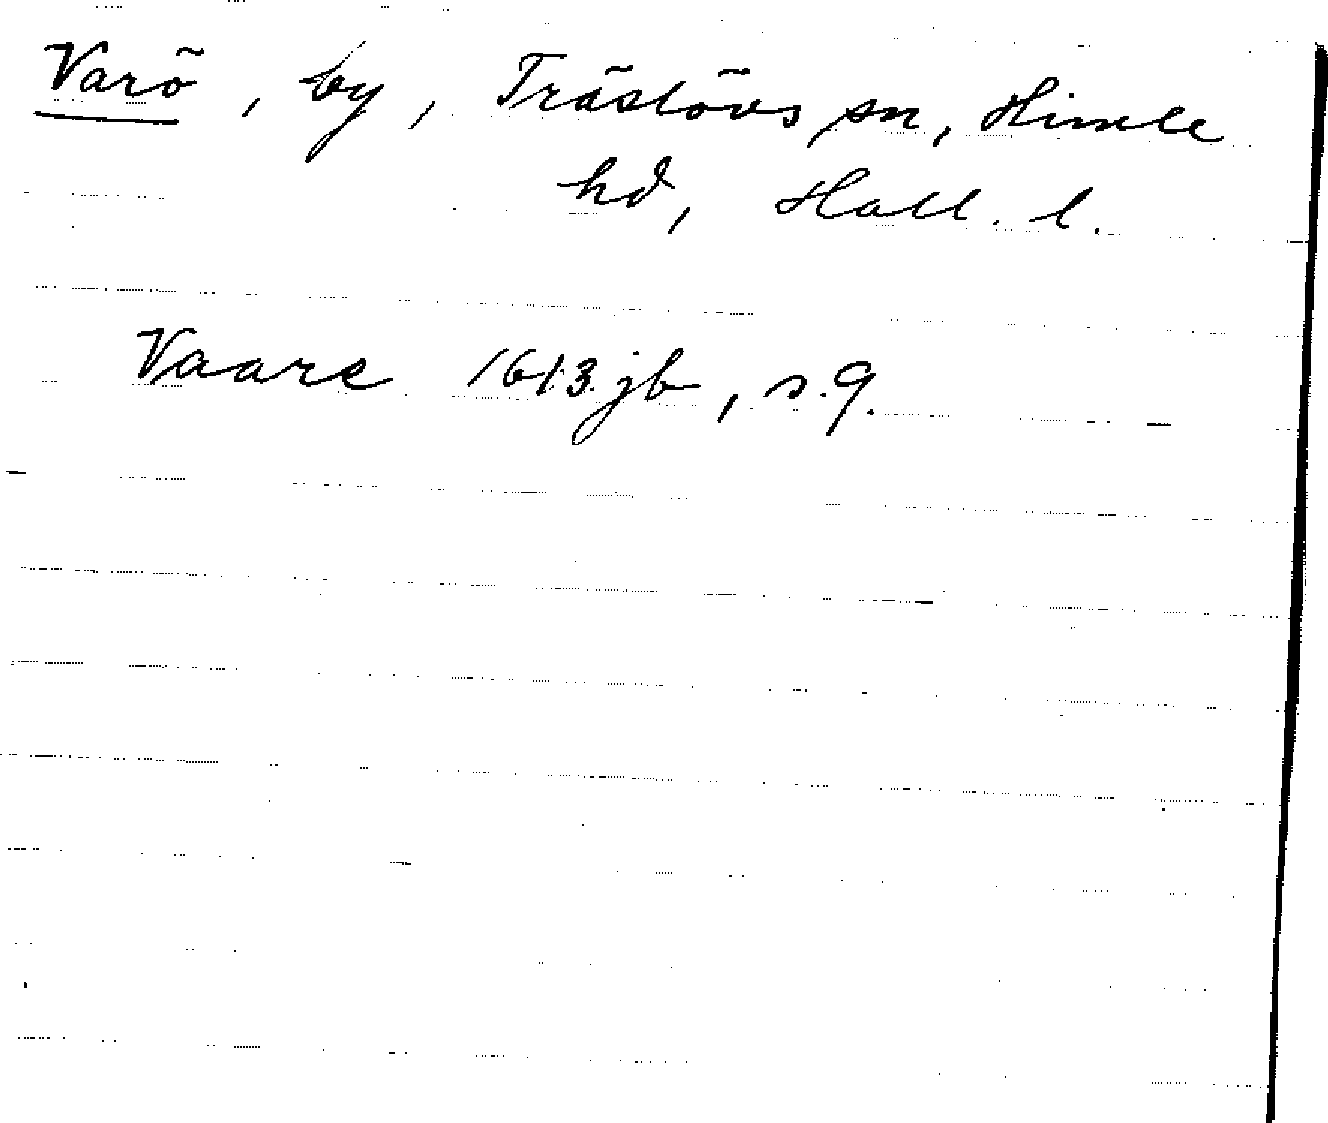 Varö, by, Träslövs sn, Himle
hd, Hall. l.
Vaare 1613 jb, s. 9.